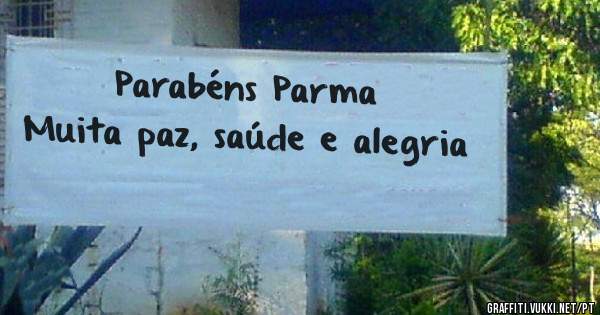 Parabéns Parma
Muita paz, saúde e alegria
GRAFFITI.VUKKI.NET/PT